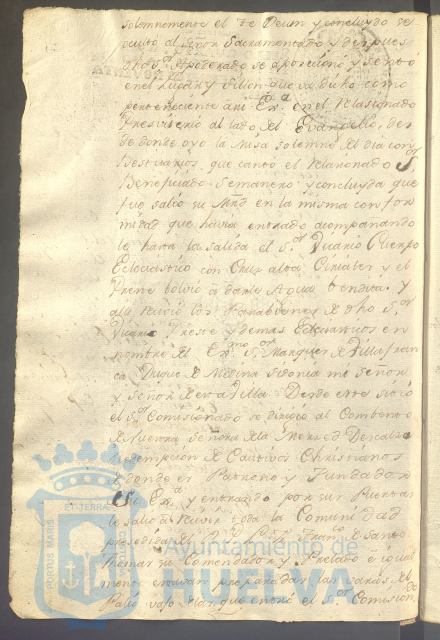 solemnemente el Te Deum y concluydo se
oculto al Señor Sacramentado y despues
dho S.r Apoderado se aposesionó y sento
en el lugar y sillon que va dicho como
perteneciente a mi Ex.a en el relasionado
Presviterio al lado del Evangelio, des
de donde oyo la Misa solemne del dia con
Bestuarios, que cantó el relacionado S.r
Beneficiado Semanero y concluyda que
fue salio su Mrd en la misma confor
midad que havia entrado acompanando
le hasta la salida el S.r Vicario Cuerpo
Eclesiastico con Cruz alta, Ciriales y el
Preste bolvió a darle Agua bendita, y
alli recivió los Parabienes de dho S.r
Vicario Preste y demas Eclesiasticos en
nombre del Ex.mo S.or Marques de Villafran
ca Duque de Medina Sidonia mi Señor
y Señor de esta Villa. Desde este sitio
el S.or Comisionado se dirigio al Combento
de Nuestra Señora de la Merced Descalsa
redempcion de Cautivos Christianos
de donde es Patrono y Fundador
Su Ex.a y entrando por sus Puertas
le salio a recivir toda la Comunidad
presedida del Fran.co de Santo
Thomas su Comendador y Prelado e igual
mente estavan preparadas las varas del
Palio vajo del que entró el S.or Comision.do
Ayuntamiento de
HUELVA
PORTUS MARIS ET TERRAE CUSTODIA